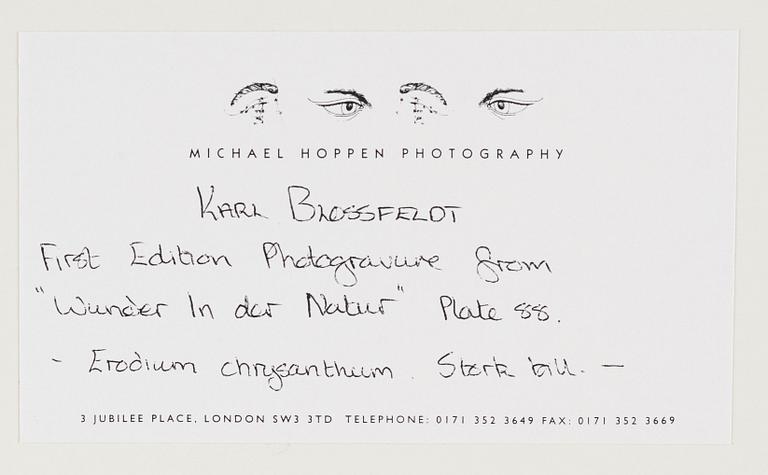 MICHAEL HOPPEN PHOTOGRAPHY
KARL BLOSSFELDT
First Edition Photogravure from
"Wunder In der Natur" Plate 88.
- Erodium chrysanthum. Stork bill. —
3 JUBILEE PLACE, LONDON SW3 3TD TELEPHONE: 0171 352 3649 FAX: 0171 352 3669